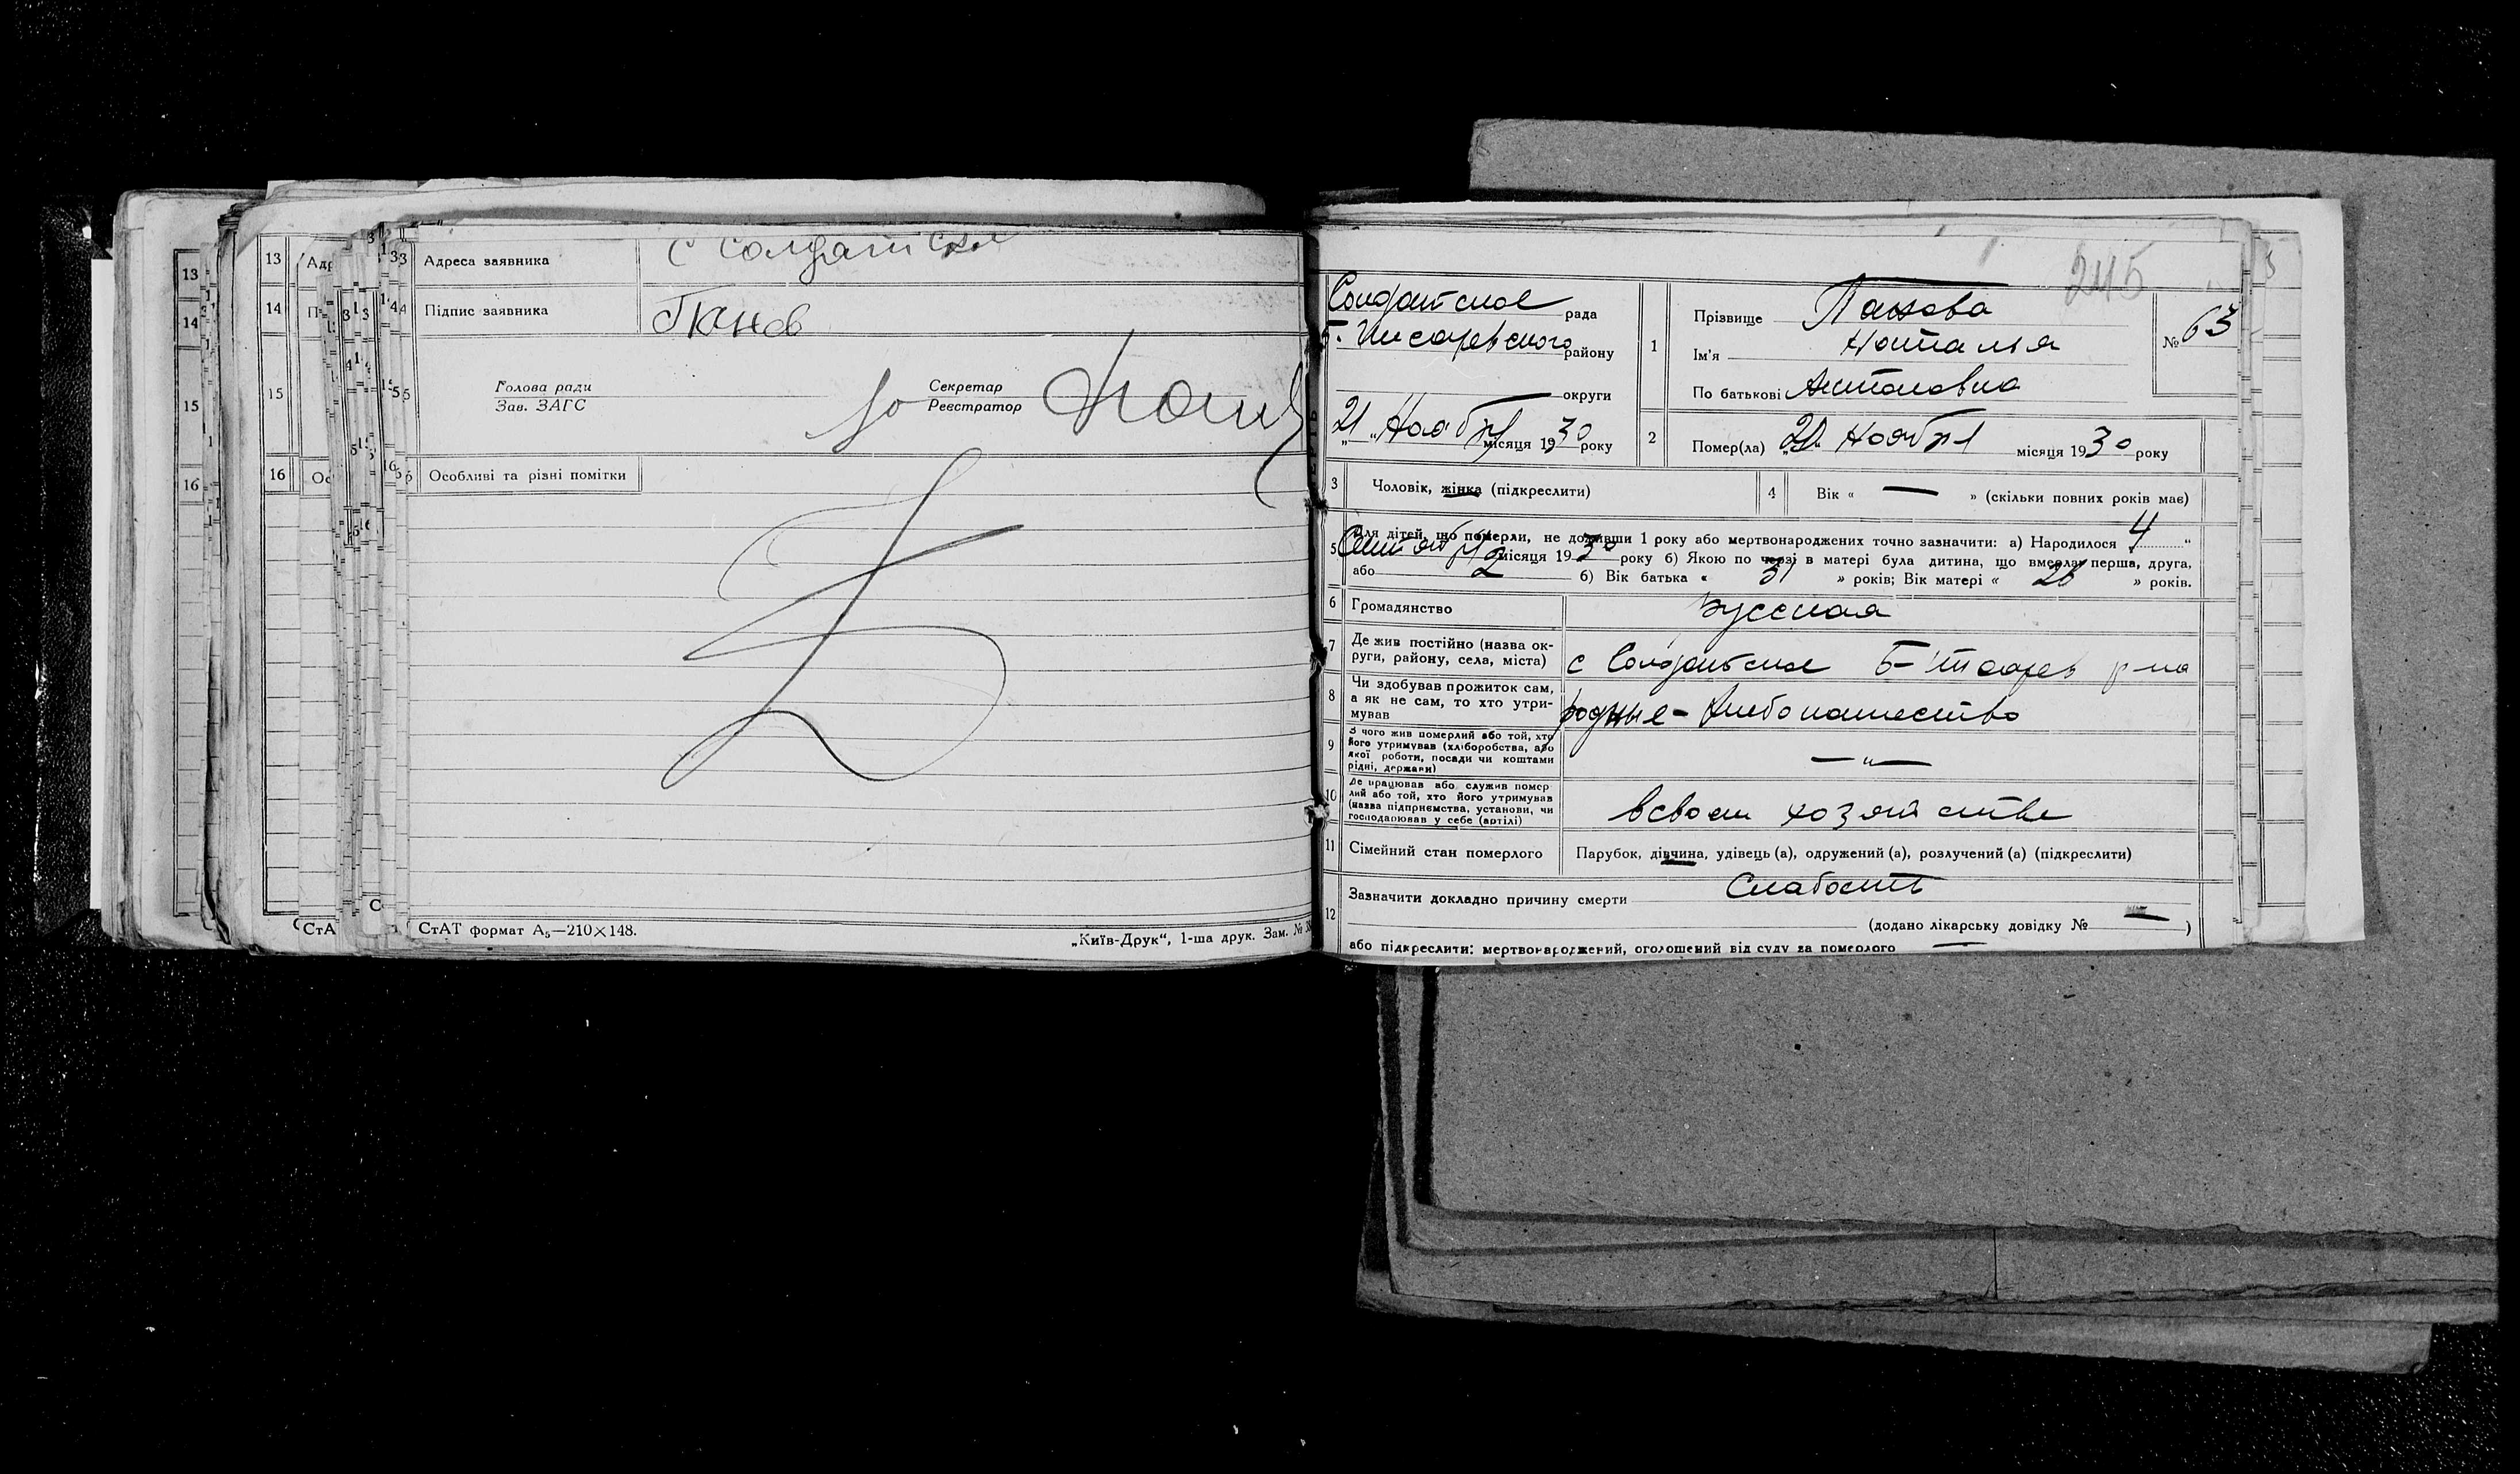 13 Адреса заявника с Солдатское
14 Підпис заявника Панов
15 Голова ради
Зав. ЗАГС
Секретар
Реєстратор
16 Особливі та різні помітки
СтАТ формат А₅—210×148.
„Київ-Друк“, 1-ша друк. Зам. №
245
Солдатское рада
Б. Писаревского району
округи
21 Ноября місяця 1930 року
1 Прізвище Панова
Ім'я Наталья
По батькові Антоновна
№ 63
2 Помер(ла) 20 Ноября місяця 1930 року
3 Чоловік, жінка (підкреслити)
4 Вік « — » (скільки повних років має)
5 Для дітей, що померли, не доживши 1 року або мертвонароджених точно зазначити: а) Народилося 4
Сентября місяця 1930 року б) Якою по черзі в матері була дитина, що вмерла: перша, друга,
або 2 б) Вік батька « 31 » років; Вік матері « 26 » років.
6 Громадянство Русская
7 Де жив постійно (назва ок-
руги, району, села, міста) с Солдатское Б-Писарев р-на
8 Чи здобував прожиток сам,
а як не сам, то хто утри-
мував родные - Хлебопашество
9 З чого жив померлий або той, хто
його утримував (хліборобства, або
якої роботи, посади чи коштами
рідні, держави) —„—
10 Де працював або служив помер-
лий або той, хто його утримував
(назва підприємства, установи, чи
господарював у себе (артілі) в своем хозяйстве
11 Сімейний стан померлого Парубок, дівчина, удівець (а), одружений (а), розлучений (а) (підкреслити)
12 Зазначити докладно причину смерти Слабость
(додано лікарську довідку № — )
або підкреслити: мертвонароджений, оголошений від суду за померлого —